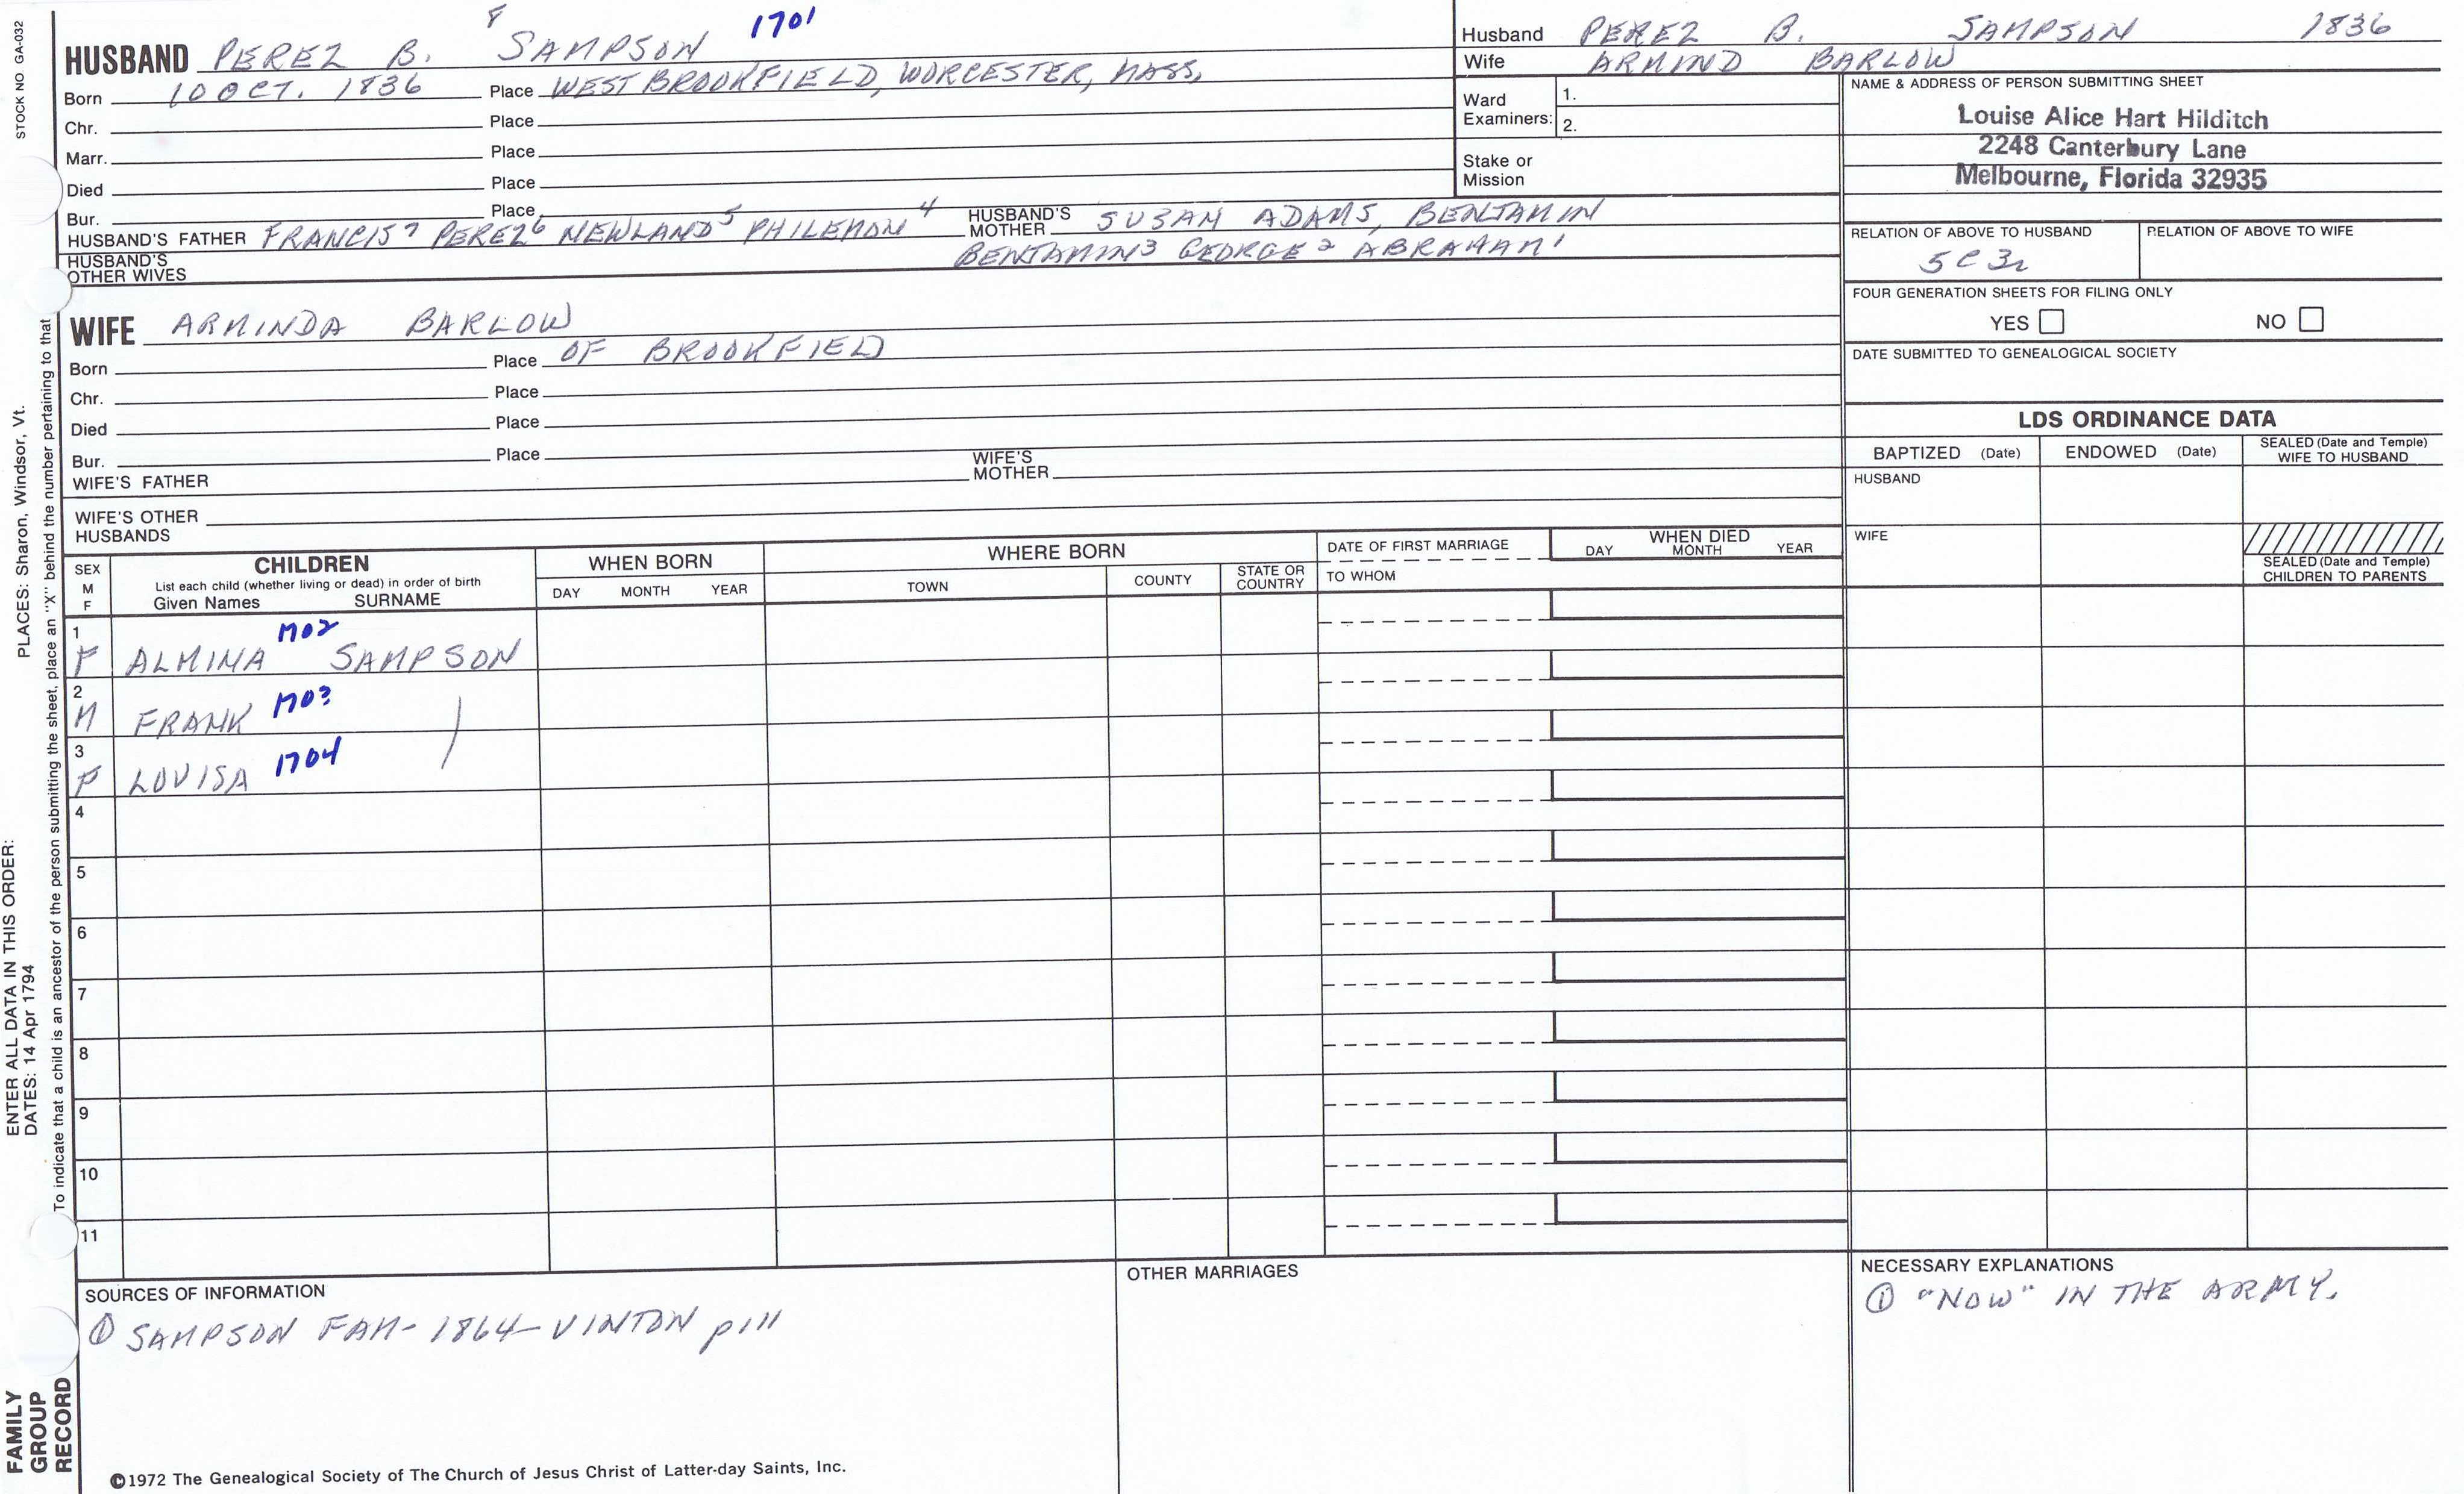 STOCK NO GA-032
PLACES: Sharon, Windsor, Vt.
ENTER ALL DATA IN THIS ORDER:
DATES: 14 Apr 1794
To indicate that a child is an ancestor of the person submitting the sheet, place an "X" behind the number pertaining to that
FAMILY
GROUP
RECORD
HUSBAND PEREZ B. 8 SAMPSON 1701
Born 10 OCT. 1836 Place WEST BROOKFIELD, WORCESTER, MASS,
Chr. Place
Marr. Place
Died Place
Bur. Place
HUSBAND'S FATHER FRANCIS7 PEREZ6 NEWLAND5 PHILEMON4 HUSBAND'S MOTHER SUSAN ADAMS, BENJAMIN
BENJAMIN3 GEORGE2 ABRAHAM1
HUSBAND'S
OTHER WIVES
WIFE ARMINDA BARLOW
Born Place OF BROOKFIELD
Chr. Place
Died Place
Bur. Place
WIFE'S FATHER WIFE'S MOTHER
WIFE'S OTHER
HUSBANDS
Husband PEREZ B. SAMPSON 1836
Wife ARMIND BARLOW
Ward
Examiners:
1.
2.
Stake or
Mission
NAME & ADDRESS OF PERSON SUBMITTING SHEET
Louise Alice Hart Hilditch
2248 Canterbury Lane
Melbourne, Florida 32935
RELATION OF ABOVE TO HUSBAND RELATION OF ABOVE TO WIFE
5C3r
FOUR GENERATION SHEETS FOR FILING ONLY
YES NO
DATE SUBMITTED TO GENEALOGICAL SOCIETY
LDS ORDINANCE DATA
BAPTIZED (Date) ENDOWED (Date) SEALED (Date and Temple)
WIFE TO HUSBAND
HUSBAND
WIFE
SEALED (Date and Temple)
CHILDREN TO PARENTS
SEX
M
F
CHILDREN
List each child (whether living or dead) in order of birth
Given Names SURNAME
WHEN BORN
DAY MONTH YEAR
WHERE BORN
TOWN COUNTY STATE OR COUNTRY
DATE OF FIRST MARRIAGE
TO WHOM
WHEN DIED
DAY MONTH YEAR
1 1702
F ALMINA SAMPSON
2 1703
M FRANK
3 1704
F LOUISA
4
5
6
7
8
9
10
11
SOURCES OF INFORMATION
① SAMPSON FAM- 1864- VINTON p111
OTHER MARRIAGES
NECESSARY EXPLANATIONS
① "NOW" IN THE ARMY.
©1972 The Genealogical Society of The Church of Jesus Christ of Latter-day Saints, Inc.